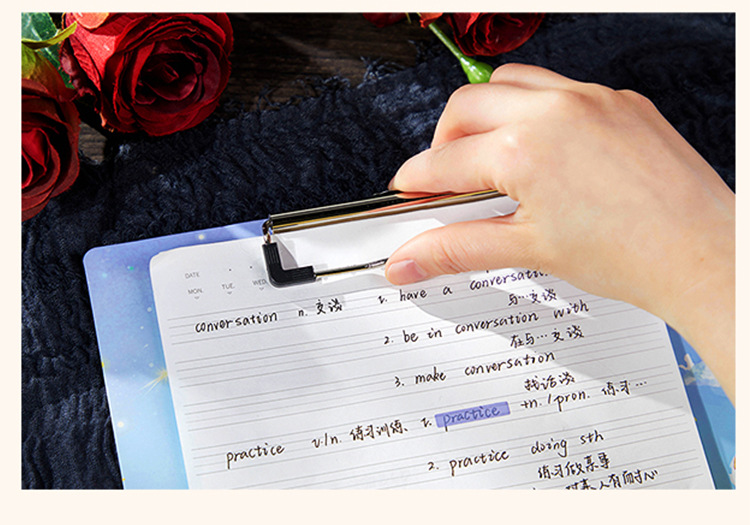 DATE
MON. TUE. WED.
conversation n. 交谈 1. have a conversation
与…交谈
2. be in conversation with
在与…交谈
3. make conversation
找话谈
practice v./n. 练习训练、1. practice +n. / pron. 练习…
2. practice doing sth
练习做某事